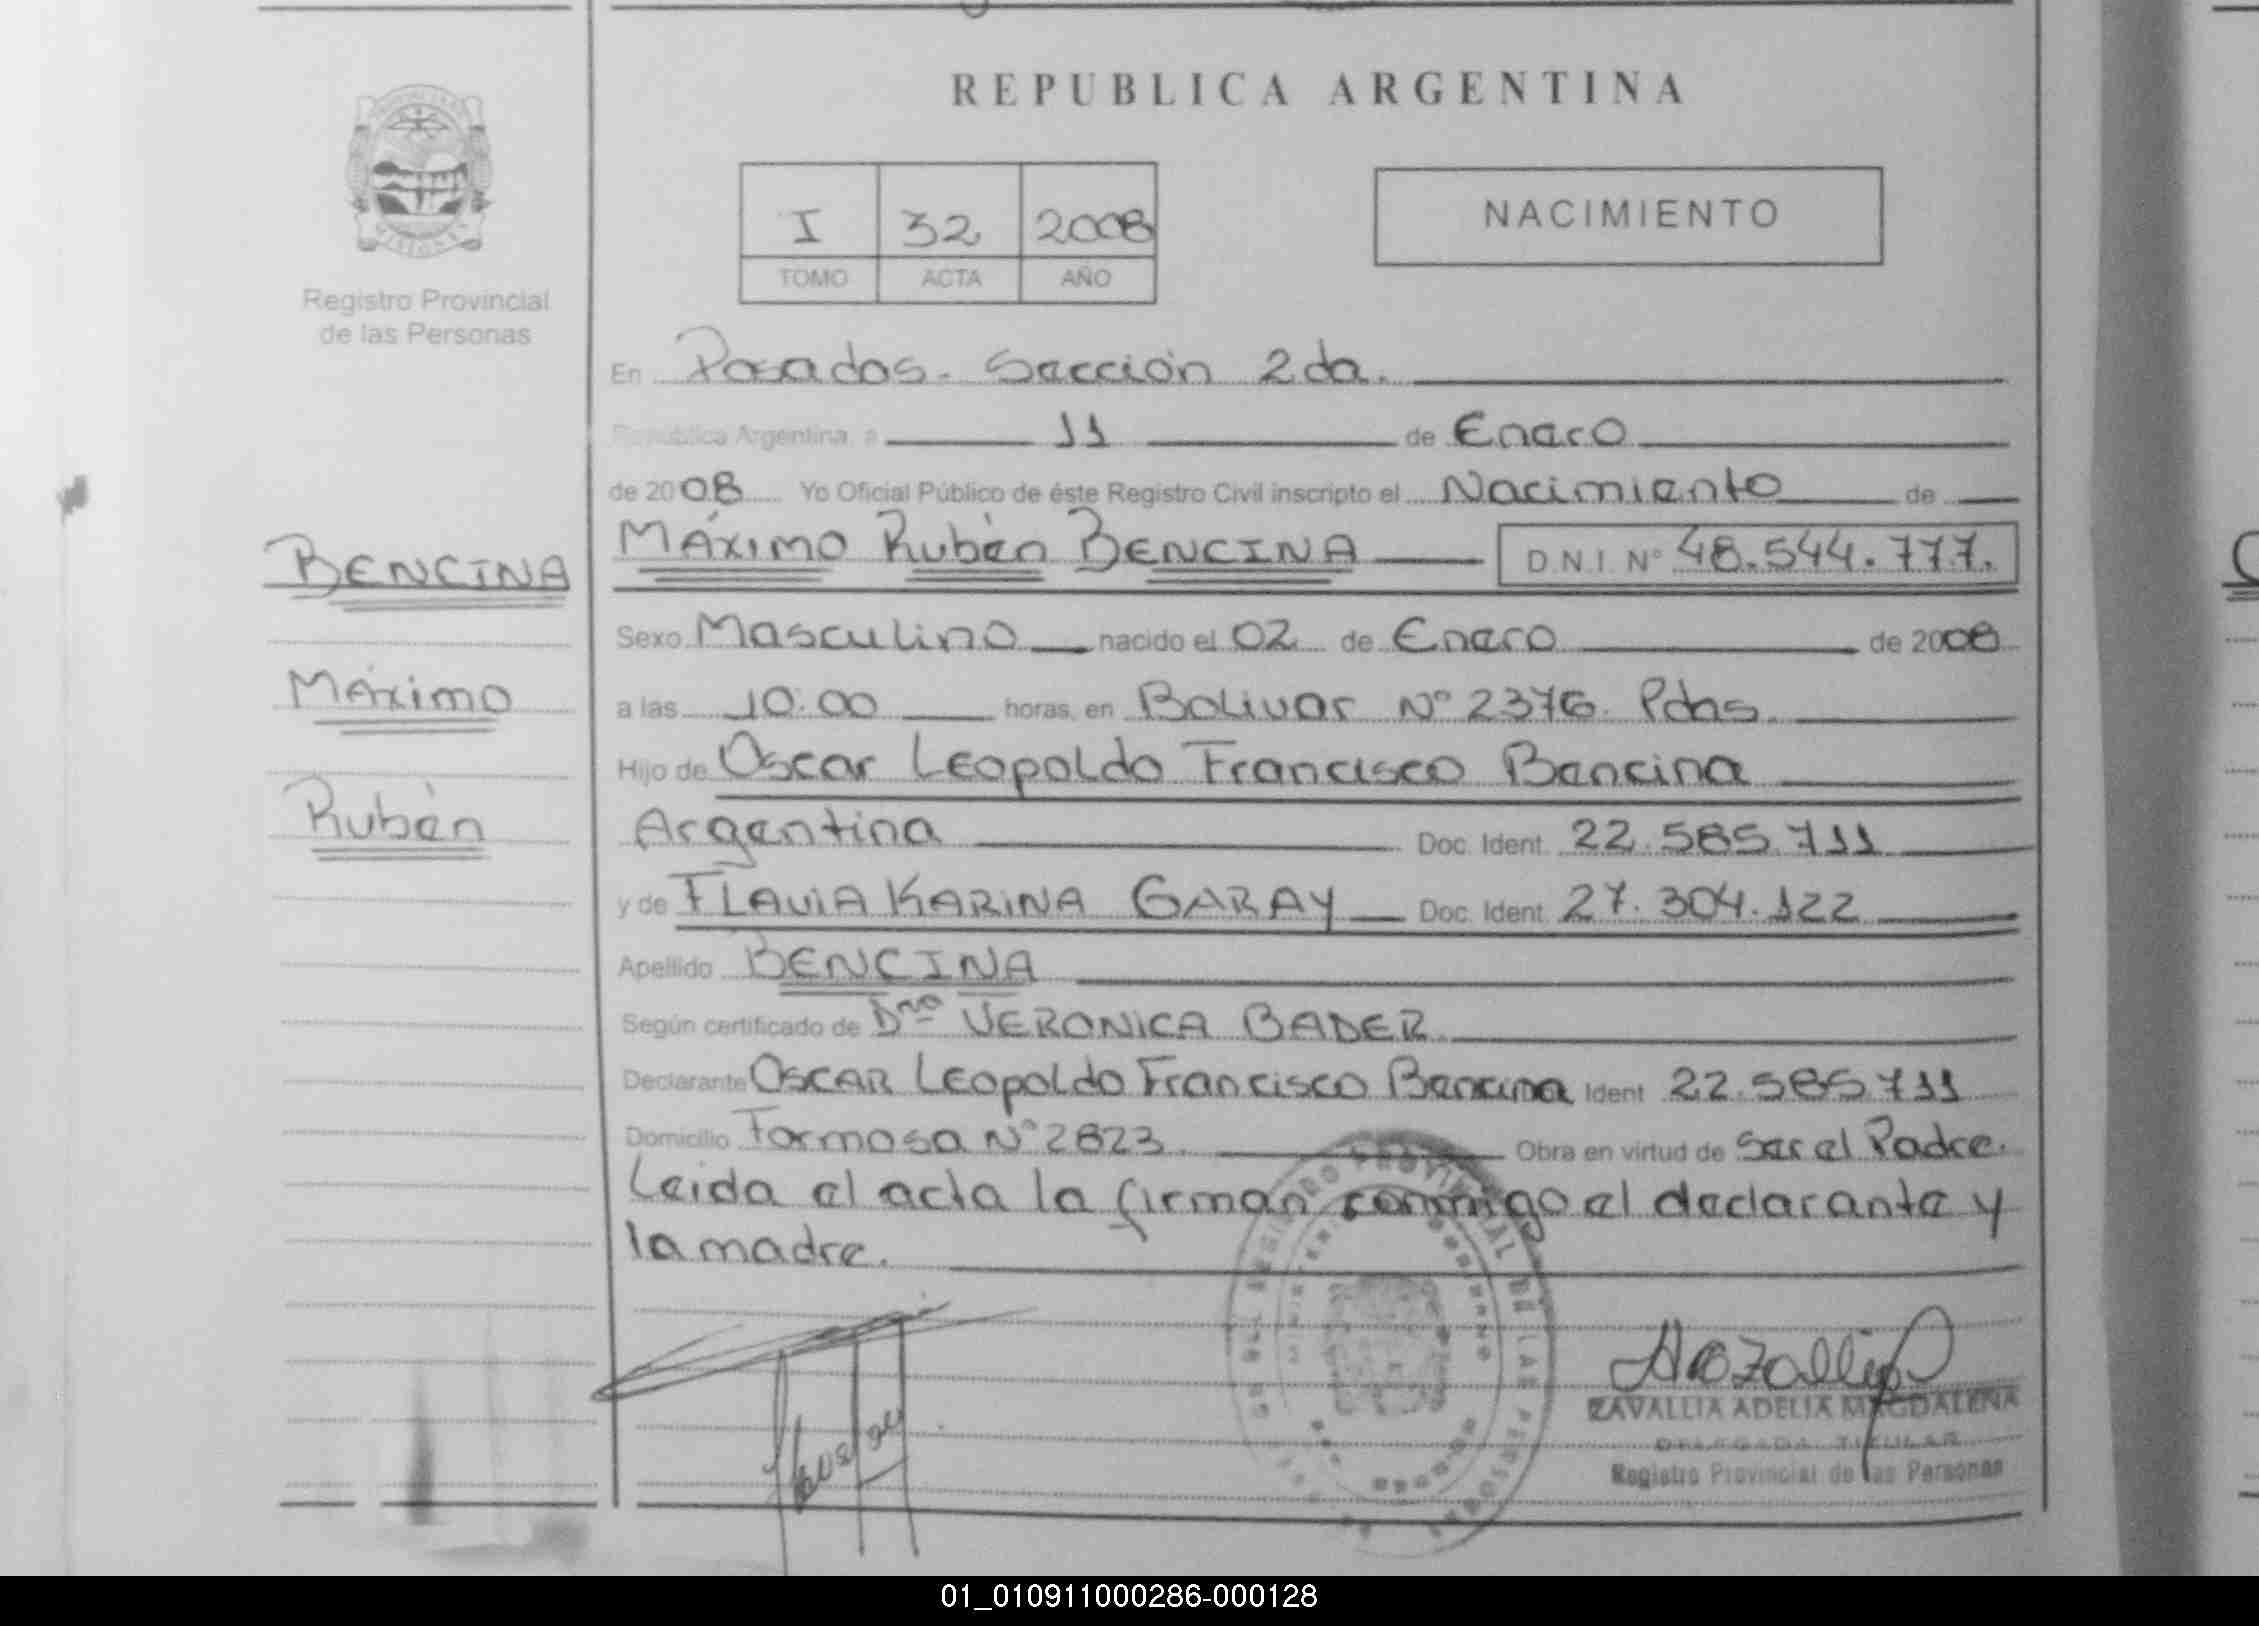 REPUBLICA ARGENTINA
MISIONES
Registro Provincial
de las Personas
I 32 2008
TOMO ACTA AÑO
NACIMIENTO
En Posadas. Sección 2da.
República Argentina, a 11 de Enero
de 2008 Yo Oficial Público de éste Registro Civil inscripto el Nacimiento de
BENCINA
Máximo
Rubén
MÁXIMO Rubén BENCINA D.N.I. Nº 48.544.777.
Sexo Masculino nacido el 02 de Enero de 2008
a las 10:00 horas, en Bolivar Nº 2376. Pdas.
Hijo de Oscar Leopoldo Francisco Bencina
Argentina Doc. Ident. 22.585.711
y de FLAVIA KARINA GARAY Doc. Ident. 27.304.122
Apellido BENCINA
Según certificado de Dra VERONICA BADER.
Declarante OSCAR Leopoldo Francisco Bencina Ident 22.585.711
Domicilio Formosa Nº 2823. Obra en virtud de Ser el Padre.
Leida el acta la firman conmigo el declarante y
la madre.
REGISTRO PROVINCIAL DE LAS PERSONAS
ZAVALLIA ADELIA MAGDALENA
DELEGADA TITULAR
Registro Provincial de las Personas
01_010911000286-000128